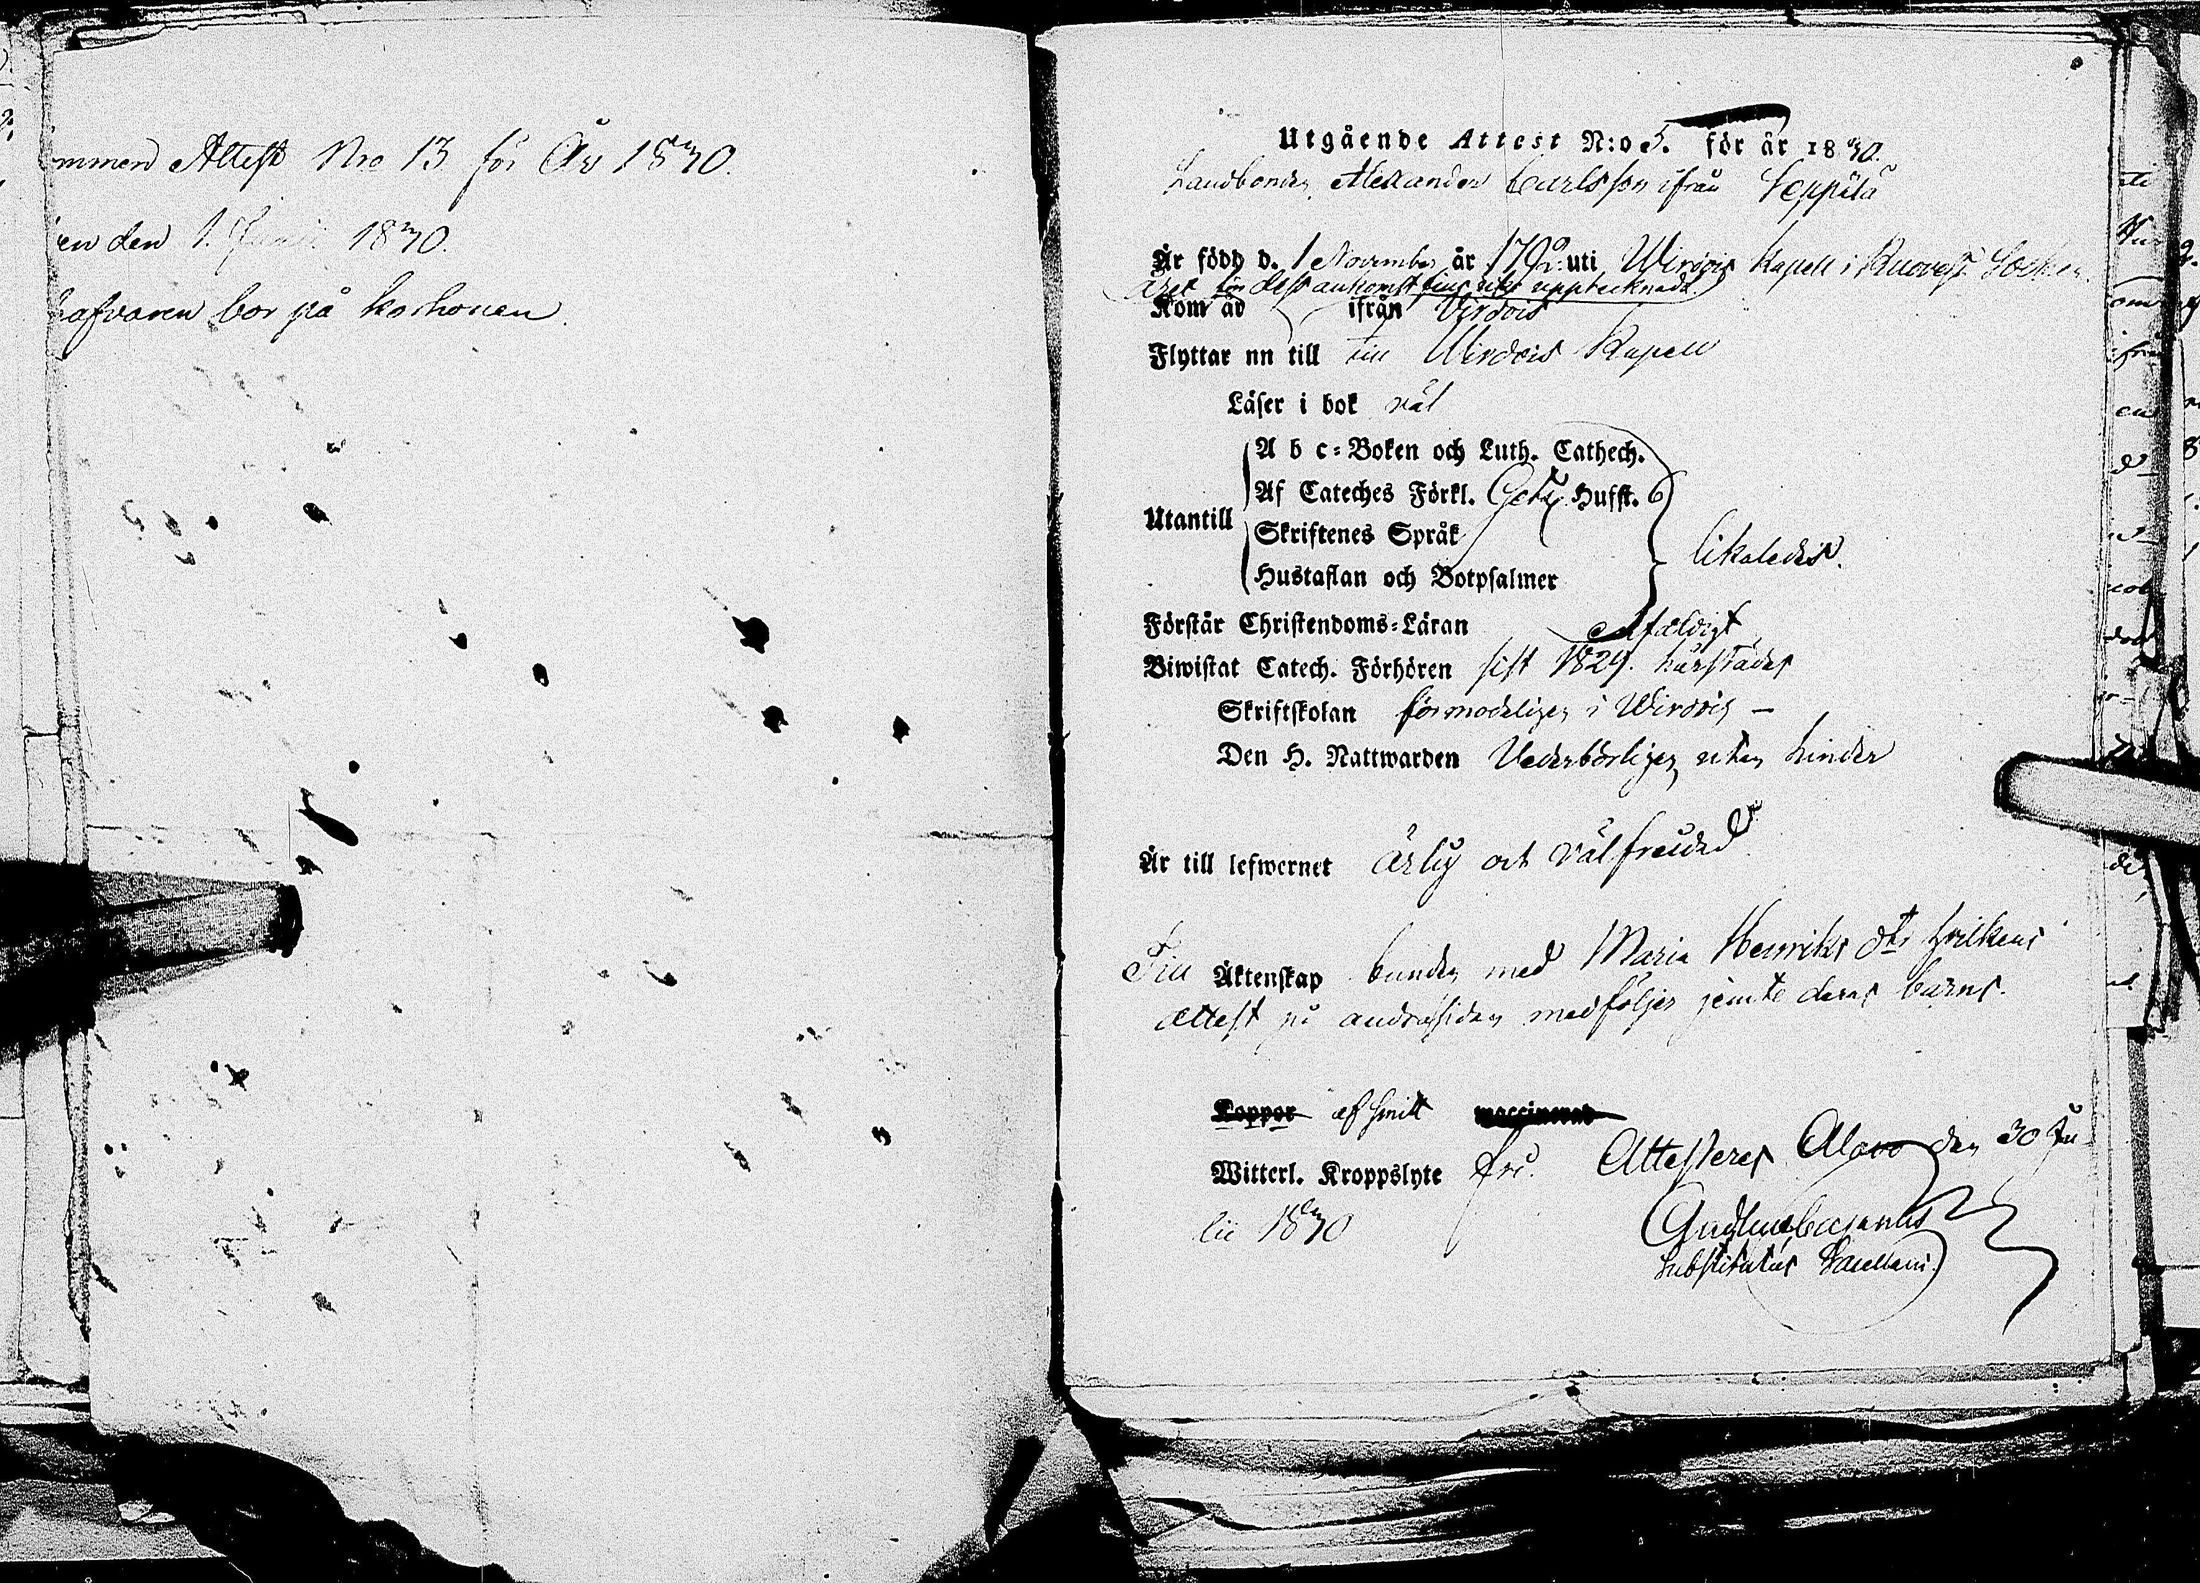 mmen Attest Nro 13 för År 1830.
en den 1. Junii 1830.
hafvaren bor på Korhonen.
Utgående Attest N:o 5. för år 1830.
Landbonden Alexander Carlsson ifrån Seppälä
Är född d. 1 November år 1792 uti Wirdois Kapell i Ruovesi Socken
året för dess ankomst fins icke upptecknadt
Kom år ifrån Virdois
Flyttar nu till till Wirdois Kapell
Läser i bok väl
A b c-Boken och Luth. Cathech.
Af Cateches Förkl. Hufst. 6
Utantill
Skriftenes Språk
Hustaflan och Botpsalmer
likaledes.
Förstår Christendoms-Läran enfaldigt
Biwistat Catech. Förhören sist 1829. härstädes
Skriftskolan förmodeligen i Wirdois —
Den H. Nattwarden Vederbörligen utan hinder
Är till lefwernet ärlig och välfreidad
Till Äktenskap bunden med Maria Henriks dtr hvilkens
attest på andra sidan medföljer jemte deras barns.
Koppor af smitt waccinerad
Witterl. Kroppslyte fri. Attesteras Alavo den 30 Ju-
lii 1830
Substitutus Sacellani.